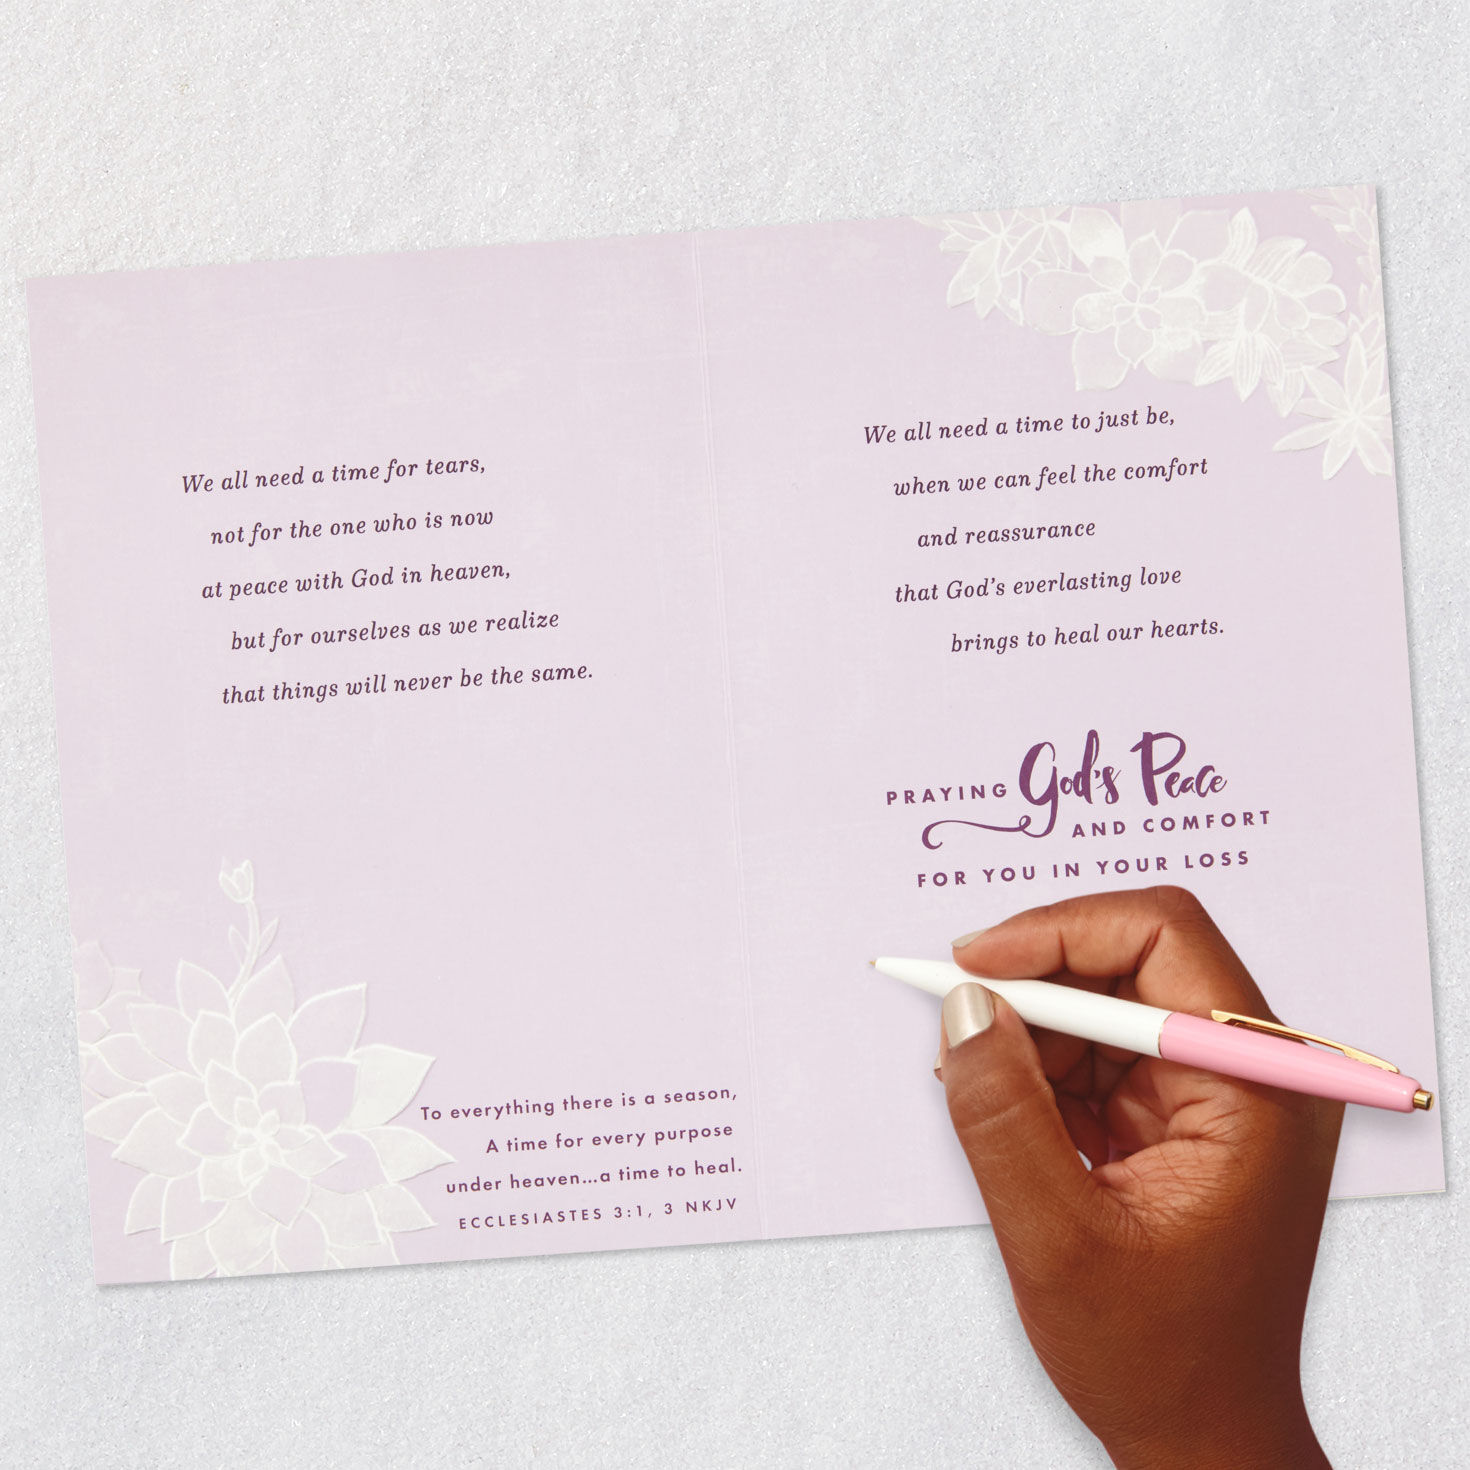 We all need a time for tears,
not for the one who is now
at peace with God in heaven,
but for ourselves as we realize
that things will never be the same.
To everything there is a season,
A time for every purpose
under heaven...a time to heal.
ECCLESIASTES 3:1, 3 NKJV
We all need a time to just be,
when we can feel the comfort
and reassurance
that God's everlasting love
brings to heal our hearts.
PRAYING God's Peace
AND COMFORT
FOR YOU IN YOUR LOSS